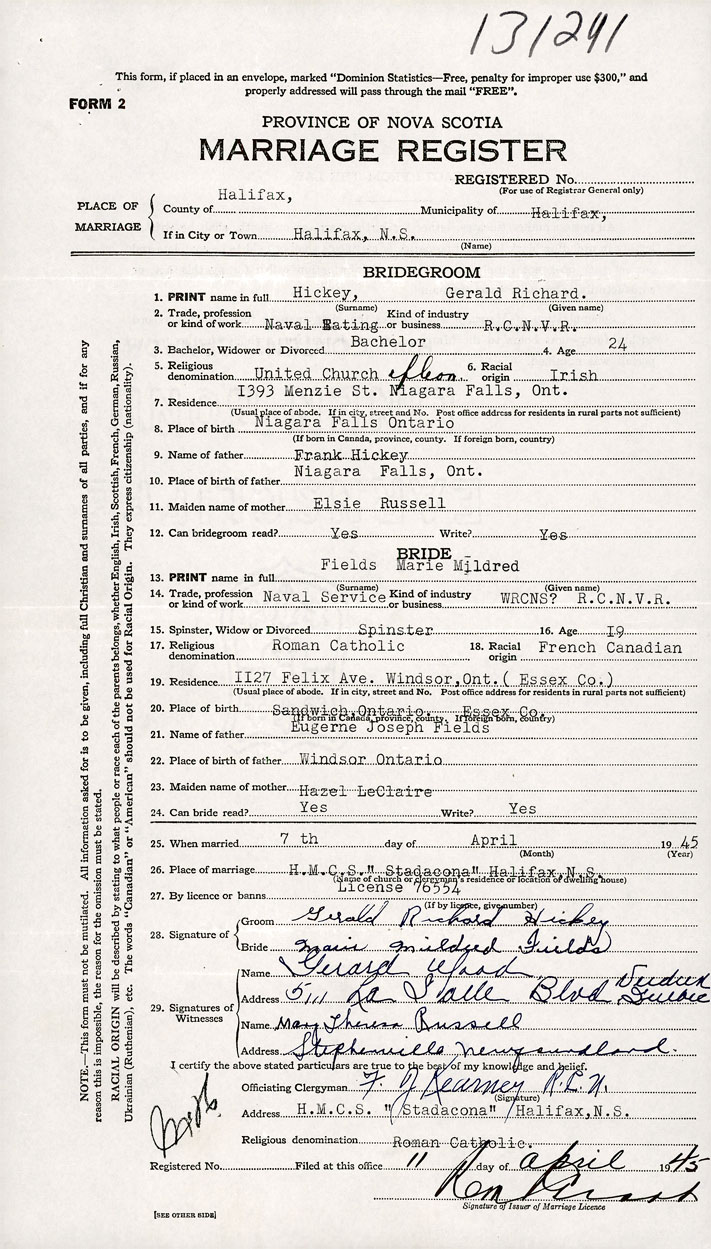 131241
This form, if placed in an envelope, marked "Dominion Statistics—Free, penalty for improper use $300," and
properly addressed will pass through the mail "FREE".
FORM 2
PROVINCE OF NOVA SCOTIA
MARRIAGE REGISTER
REGISTERED No.
(For use of Registrar General only)
PLACE OF MARRIAGE
County of Halifax, Municipality of Halifax,
If in City or Town Halifax, N.S.
(Name)
BRIDEGROOM
1. PRINT name in full Hickey, Gerald Richard.
(Surname) (Given name)
2. Trade, profession or kind of work Naval Rating Kind of industry or business R.C.N.V.R.
3. Bachelor, Widower or Divorced Bachelor 4. Age 24
5. Religious denomination United Church of Can. 6. Racial origin Irish
7. Residence I393 Menzie St. Niagara Falls, Ont.
(Usual place of abode. If in city, street and No. Post office address for residents in rural parts not sufficient)
8. Place of birth Niagara Falls Ontario
(If born in Canada, province, county. If foreign born, country)
9. Name of father Frank Hickey
10. Place of birth of father Niagara Falls, Ont.
11. Maiden name of mother Elsie Russell
12. Can bridegroom read? Yes Write? Yes
BRIDE
13. PRINT name in full Fields Marie Mildred
(Surname) (Given name)
14. Trade, profession or kind of work Naval Service Kind of industry or business WRCNS? R.C.N.V.R.
15. Spinster, Widow or Divorced Spinster 16. Age I9
17. Religious denomination Roman Catholic 18. Racial origin French Canadian
19. Residence II27 Felix Ave. Windsor,Ont.( Essex Co.)
(Usual place of abode. If in city, street and No. Post office address for residents in rural parts not sufficient)
20. Place of birth Sandwich,Ontario. Essex Co.
(If born in Canada, province, county. If foreign born, country)
21. Name of father Eugerne Joseph Fields
22. Place of birth of father Windsor Ontario
23. Maiden name of mother Hazel LeClaire
24. Can bride read? Yes Write? Yes
25. When married 7 th day of April 1945
(Month) (Year)
26. Place of marriage H.M.C.S." Stadacona" Halifax,N.S.
(Name of church or clergyman's residence or location of dwelling house)
27. By licence or banns License 76554
(If by licence, give number)
28. Signature of
Groom Gerald Richard Hickey
Bride Marie Mildred Fields
29. Signatures of Witnesses
Name Gerard Wood
Address 5111 La Salle Blvd Verdun Quebec
Name Mary Theresa Russell
Address Stephenville Newfoundland.
I certify the above stated particulars are true to the best of my knowledge and belief.
Officiating Clergyman F. J Kearney R.C.N.
(Signature)
Address H.M.C.S. "Stadacona" Halifax,N.S.
Religious denomination Roman Catholic.
Registered No. Filed at this office 11 day of April 1945
Signature of Issuer of Marriage Licence
[SEE OTHER SIDE]
NOTE.—This form must not be mutilated. All information asked for is to be given, including full Christian and surnames of all parties, and if for any
reason this is impossible, the reason for the omission must be stated.
RACIAL ORIGIN will be described by stating to what people or race each of the parents belongs, whether English, Irish, Scottish, French, German, Russian,
Ukrainian (Ruthenian), etc. The words "Canadian" or "American" should not be used for Racial Origin. They express citizenship (nationality).